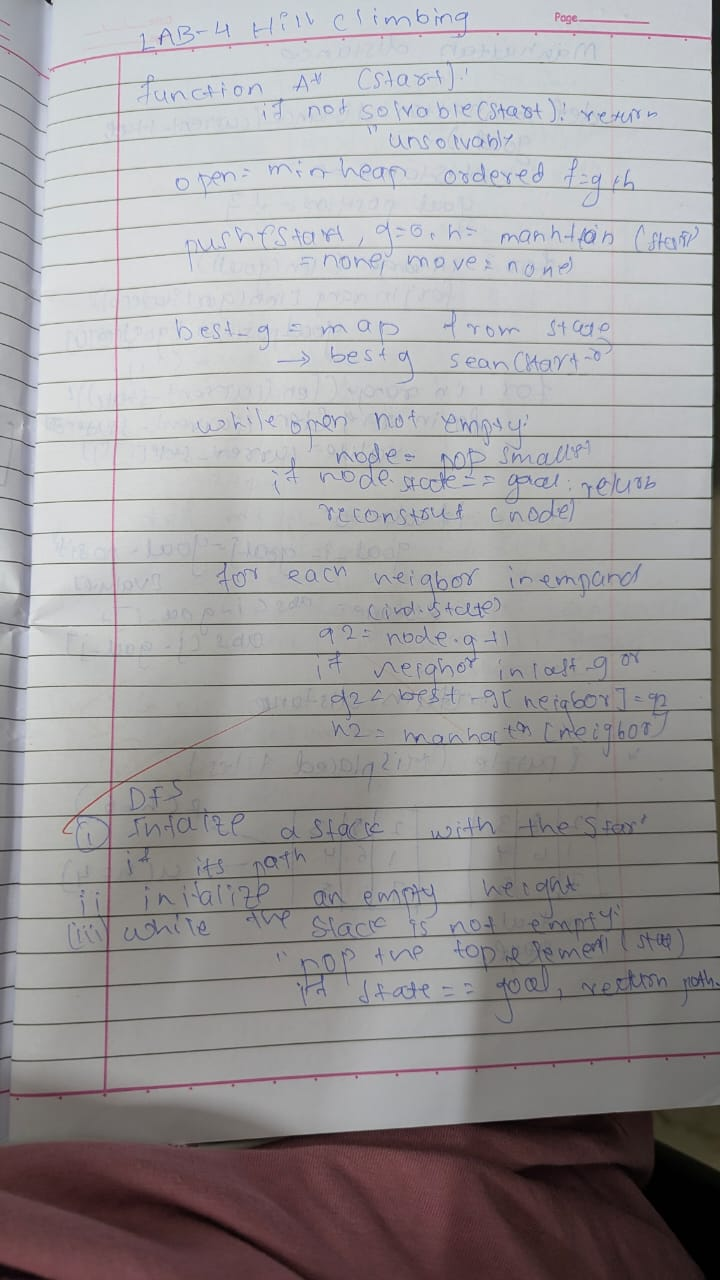 Page
LAB-4 Hill Climbing
function A* (start):
if not solvable(start): return
"unsolvable
open = min heap ordered f=g+h
push(start, g=0, h= manhttan (start)
= none, move = none)
best-g = map from state
→ best g (start=0
while open not empty:
node = pop smallest
if node.state == goal: return
reconstruct (node)
for each neigbor in empand
state)
g2 = node.g +1
if neighor in -g or
g2 < best -g[neigbor] = g2
h2 = (neigbor)
DFS
(i) Intalze a stack with the star
if its path
ii initalize an empty height
(iii) while the stack is not empty:
" pop the top element (state)
if state == goal, path.